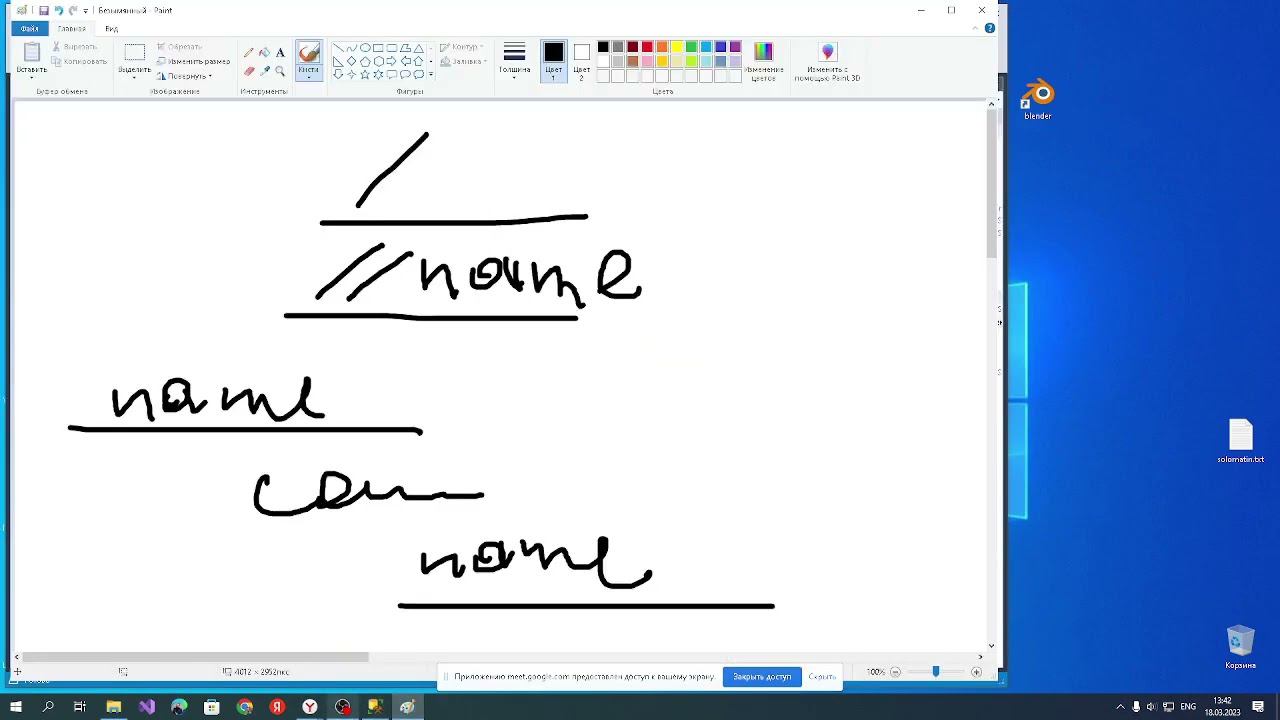 Безымянный - Paint
Файл Главная Вид
Вставить Вырезать Копировать Выделить Обрезать Изменить размер Повернуть Кисти Контур Заливка Толщина Цвет 1 Цвет 2 Изменение цветов Изменить с помощью Paint 3D
Буфер обмена Изображение Инструменты Фигуры Цвета
blender
/
//name
name
name
solomatin.txt
Корзина
100%
Закрыть доступ Скрыть
ENG 13:42
18.03.2023